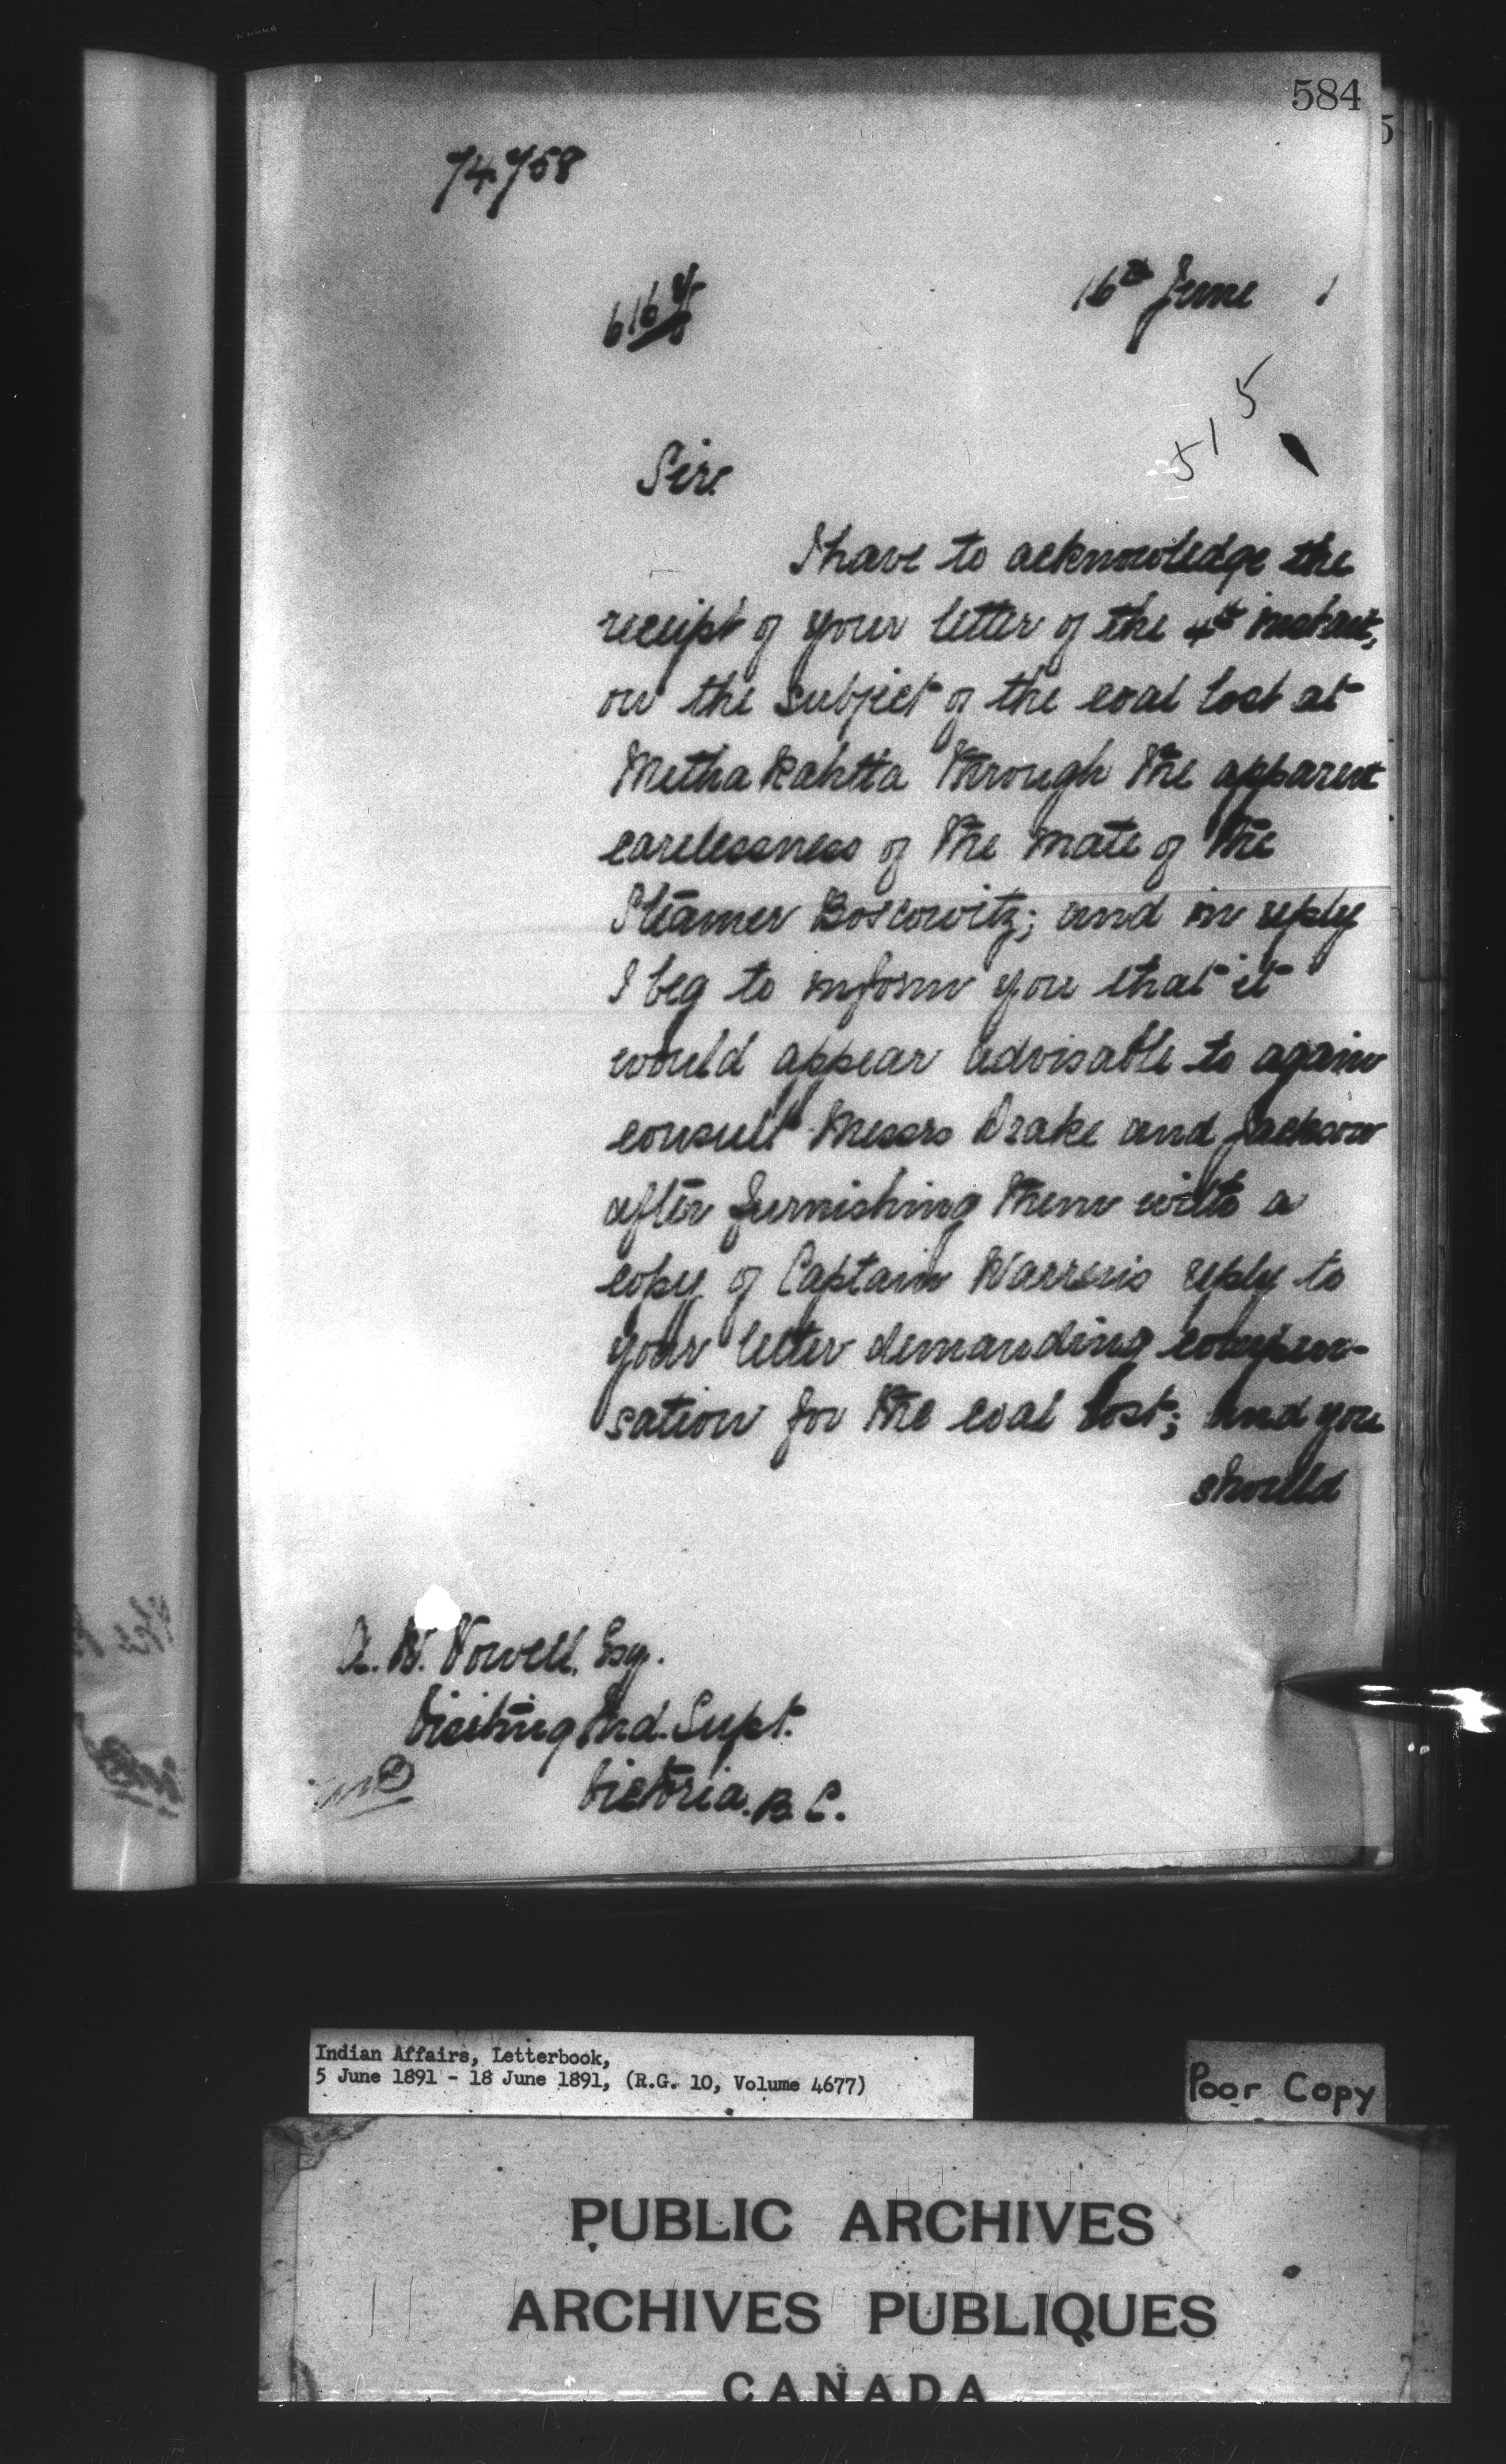 584
5
74758
616
16th June 1
515
Sir.
I have to acknowledge the
receipt of your letter of the 4th instant,
on the subject of the coal lost at
Methakahtta through the apparent
carelessness of the mate of the
Steamer Boscowitz; and in reply
I beg to inform you that it
would appear advisable to again
consult Messrs Drake and Jackson
after furnishing them with a
copy of Captain Warren's reply to
your letter demanding compen-
sation for the coal lost; and you
should
A. W. Vowell, Esq.
Visiting Ind. Supt.
Victoria. B. C.
Indian Affairs, Letterbook,
5 June 1891 - 18 June 1891, (R.G. 10, Volume 4677)
Poor Copy
PUBLIC ARCHIVES
ARCHIVES PUBLIQUES
CANADA